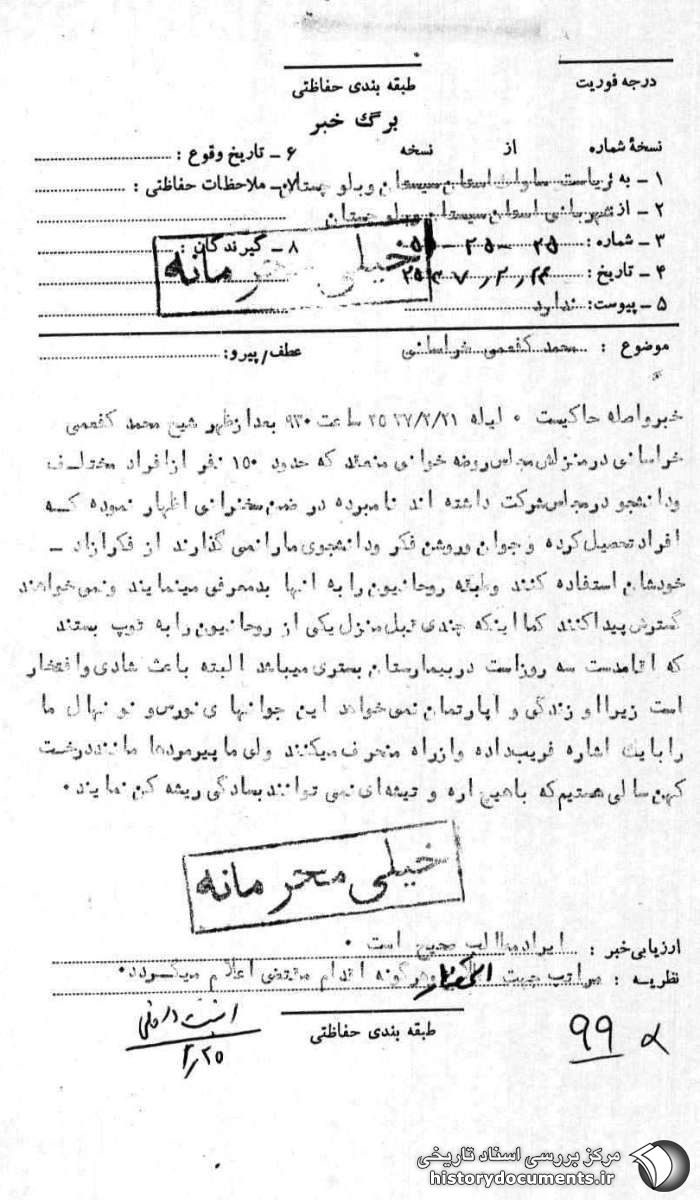 درجه فوریت
طبقه بندی حفاظتی
برگ خبر
نسخهٔ شماره از نسخه
۶ ـ تاریخ وقوع :
۱ ـ به : ریاست ساواک استان سیستان و بلوچستان
۷ ـ ملاحظات حفاظتی :
۲ ـ از شهربانی استان سیستان و بلوچستان
۳ ـ شماره :
۸ ـ گیرندگان :
خیلی محرمانه
۴ ـ تاریخ : ۲۵۳۷٫۲٫۲۴
۵ ـ پیوست: ندارد
موضوع : محمد کفعمی خراسانی
عطف/پیرو:
خبر واصله حاکیست ۰ لیله ۲۵۳۷/۲/۲۱ ساعت ۹٫۳۰ بعدازظهر شیخ محمد کفعمی
خراسانی در منزلش مجلس روضه خوانی منعقد که حدود ۱۵۰ نفر از افراد مختلف
ودانشجو در مجلس شرکت داشته اند نامبرده در ضمن سخنرانی اظهار نموده کـه
افراد تحصیل کرده و جوان وروشن فکر ودانشجوی مارا نمی گذارند از فکر ازاد ـ
خودشان استفاده کنند وطبقه روحانیون را به انها بدمعرفی مینمایند ونمی خواهند
گسترش پیدا کنند کما اینکه چندی قبل منزل یکی از روحانیون را به توپ بستند
که سه روز است در بیمارستان بستری میباشد البته باعث شادی وافتخار
است زیرا او زندگی و اپارتمان نمی خواهد این جوانهای نورس و نونهال ما
را با یک اشاره فریب داده وازراه منحرف میکنند ولی ما پیرمردها مانند درخت
کهن سالی هستیم که با هیچ اره و تیشه ای نمی توانند بسادگی ریشه کن نمایند ۰
خیلی محرمانه
ارزیابی خبر : ایراد مطالب صحیح است ۰
نظریه : مراتب جهت هرگونه اقدام مقتضی اعلام میگردد۰
امنیت داخلی
۲٫۲۵
طبقه بندی حفاظتی
۹۹
مرکز بررسی اسناد تاریخی
historydocuments.ir